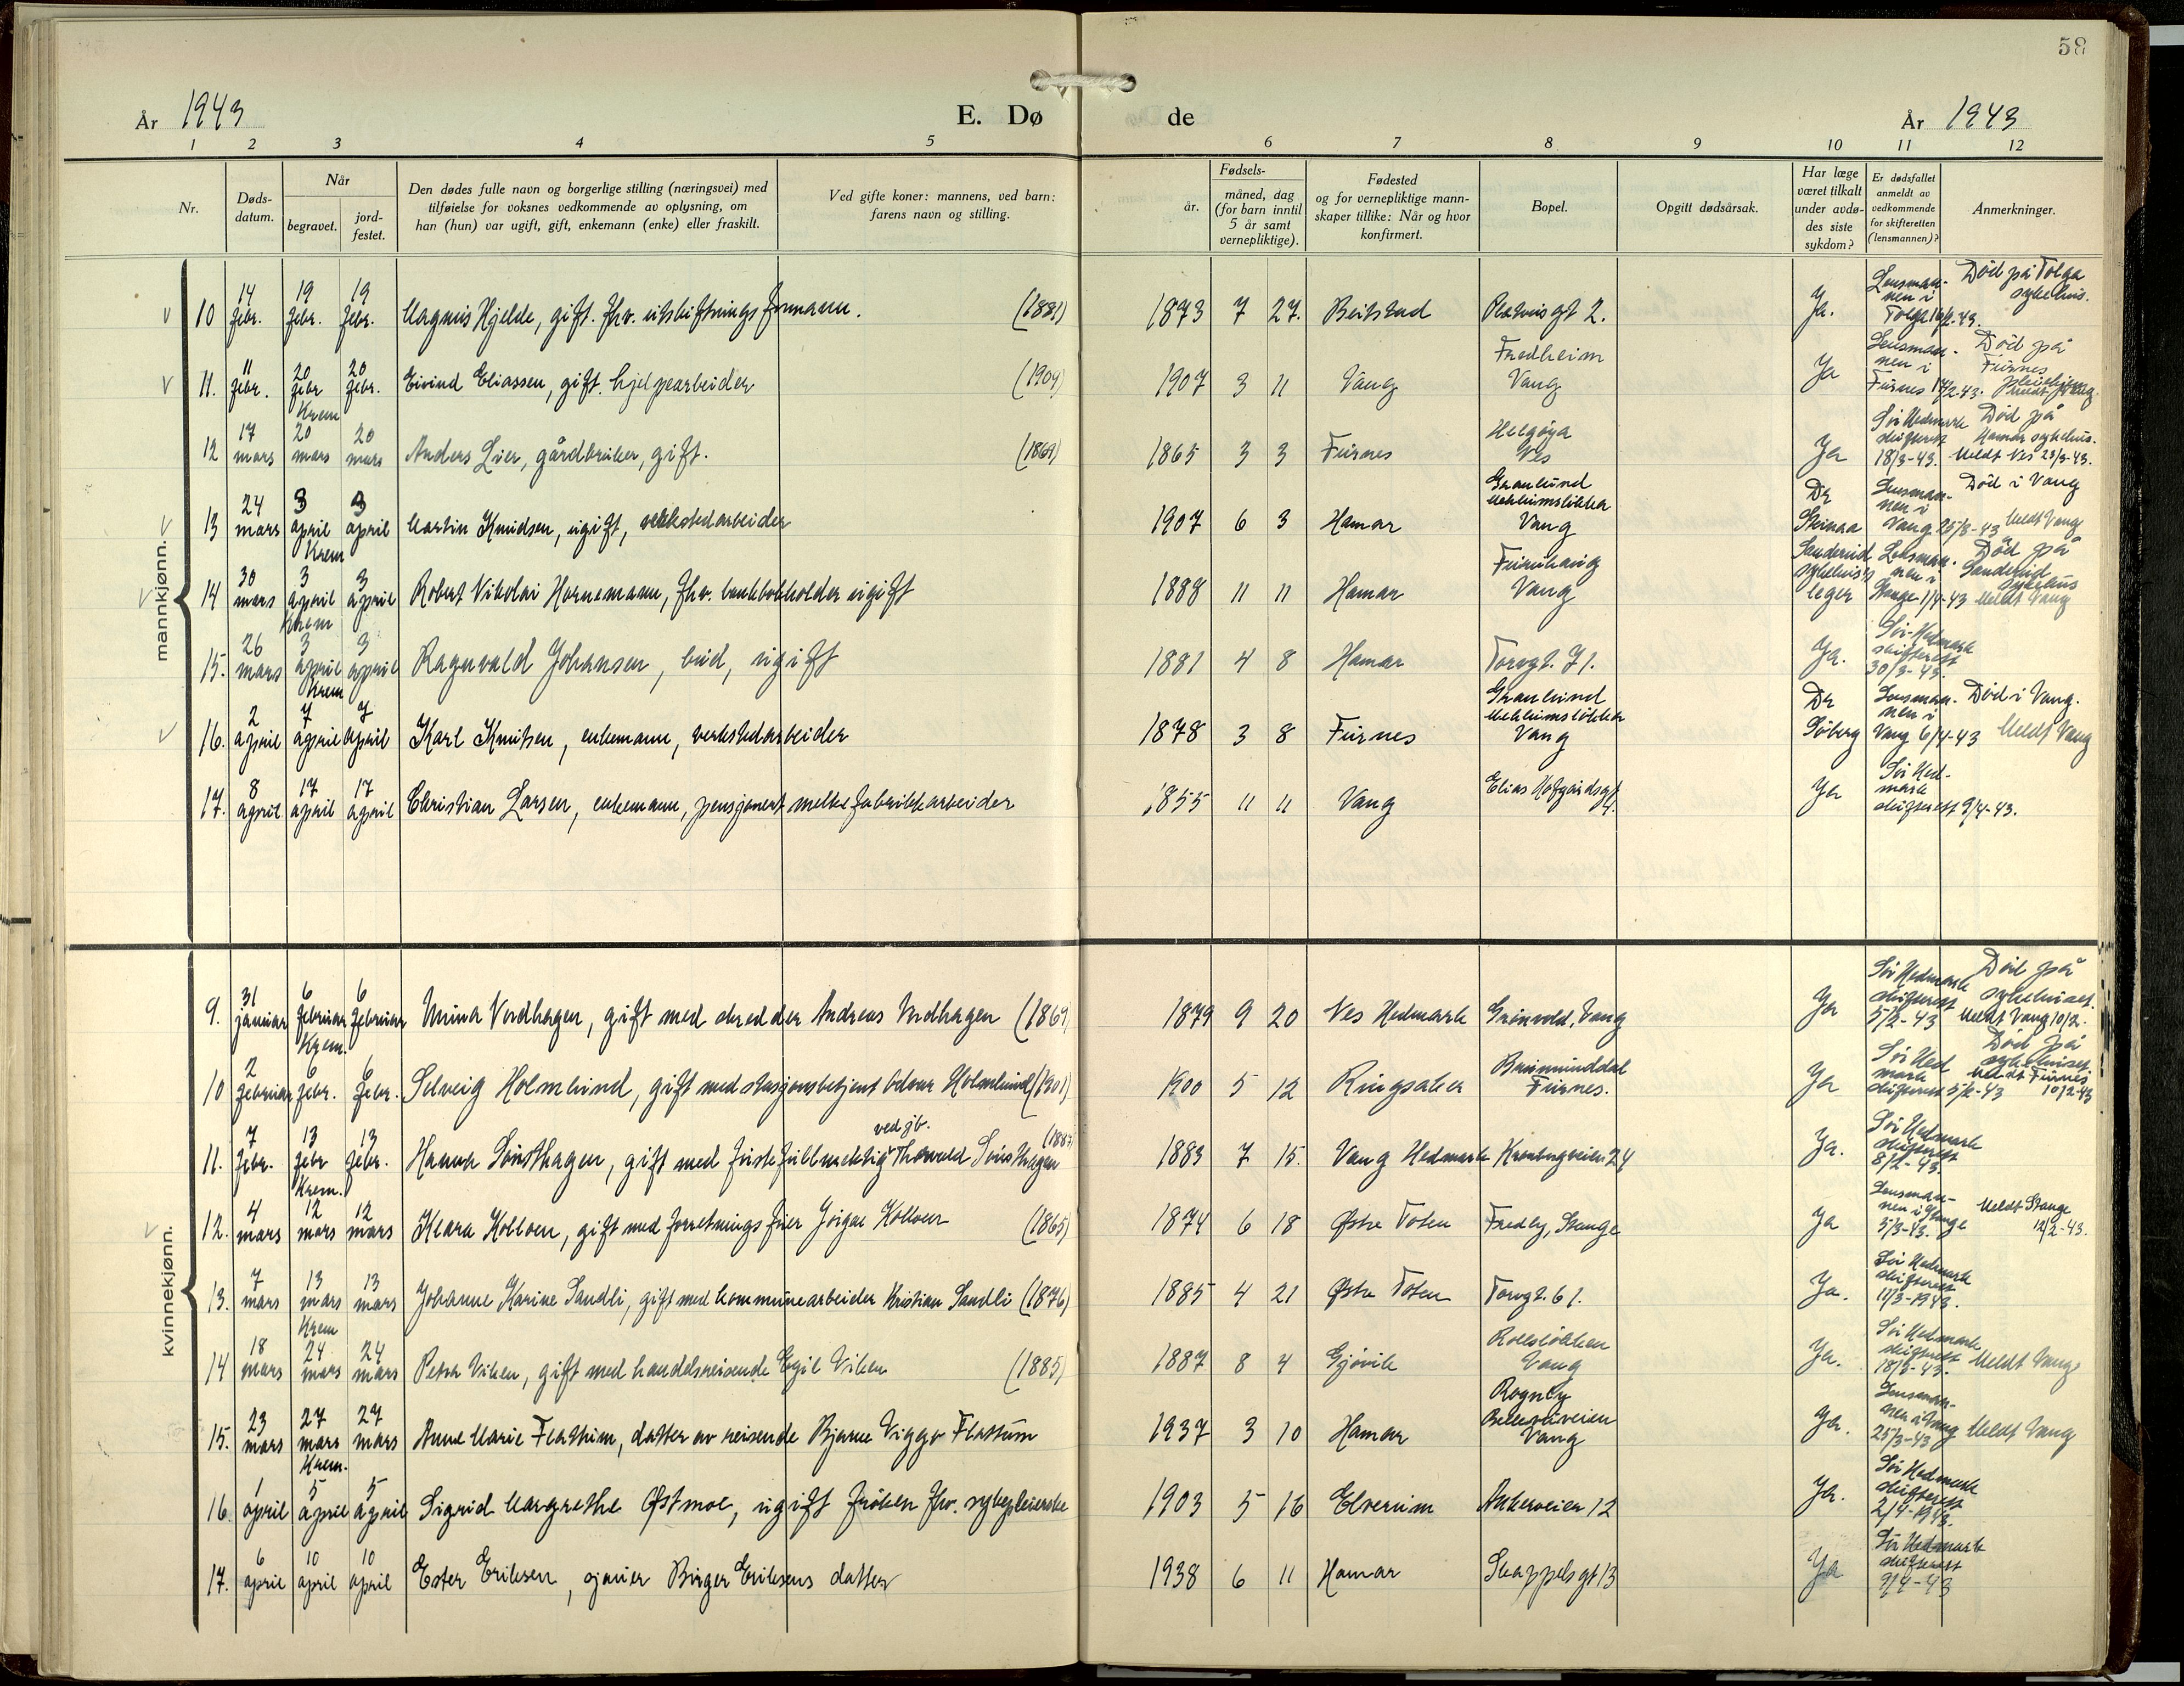 58
År 1943 E. Dø de År 1943
1 2 3 4 5 6 7 8 9 10 11 12
Nr.
Døds-
datum.
Når
begravet.
jord-
festet.
Den dødes fulle navn og borgerlige stilling (næringsvei) med
tilføielse for voksnes vedkommende av oplysning, om
han (hun) var ugift, gift, enkemann (enke) eller fraskilt.
Ved gifte koner: mannens, ved barn:
farens navn og stilling.
Fødsels-
år.
måned, dag
(for barn inntil
5 år samt
vernepliktige).
Fødested
og for vernepliktige mann-
skaper tillike: Når og hvor
konfirmert.
Bopel.
Opgitt dødsårsak.
Har læge
været tilkalt
under avdø-
des siste
sykdom?
Er dødsfallet
anmeldt av
vedkommende
for skifteretten
(lensmannen)?
Anmerkninger.
mannkjønn.
10 14 febr. 19 febr. 19 febr. Magnus Hjelde, gift. fhv. utskiftningsformann. (1881) 1873 7 27. Beitstad gt 2. Ja. Lensman-
nen i
Tolga 16/2-43. Død på Tolga
sykehus.
11. 11 febr. 20 febr 20 febr. Eivind Eliassen, gift. hjelpearbeider (1904) 1907 3 11 Vang Fredheim
Vang Ja Lensman-
nen i
Furnes Død på
Furnes
Krem
12 17 mars 20 mars 20 mars Anders Lier, gårdbruker, gift. (1869) 1865 3 3 Furnes Helgøya
Nes Ja Sør Hedmark
skifterett
18/3-43. Død på
Hamar sykehus.
Meldt Nes 23/3-43.
13 24 mars 3 april 3 april Martin Knudsen, ugift, verkstedarbeider 1907 6 3 Hamar Granlund
Vang Dr Lensman-
nen i
Vang 25/3-43 Død i Vang
Meldt Vang
Krem
14 30 mars 3 april 3 april Robert Nikolai Hornemann, fhv. bankbokholder ugift 1888 11 11 Hamar Furuhaug
Vang Sanderud
sykehus's
leger Lensman-
nen i
Stange 1/4-43 Død på
Sanderud
sykehus
Meldt Vang
Krem
15. 26 mars 3 april 3 april Ragnvald Johansen, bud, ugift 1881 4 8 Hamar Torvgt. 71. Ja. Sør-Hedmark
skifterett
30/3-43.
Krem
16. 2 april 7 april 7 april Karl Knutsen, enkemann, verkstedarbeider 1878 3 8 Furnes Granlund
Vang Dr
Søberg Lensman-
nen i
Vang 6/4-43 Død i Vang.
Meldt Vang
17. 8 april 17 april 17 april Christian Larsen, enkemann, pensjonert melkefabrikkarbeider 1855 11 11 Vang Elias Hofgårdsgt
4. Ja Sør Hed-
mark
skifterett 9/4-43.
kvinnekjønn.
9. 31 januar 6 februar 6 februar Minna Nordhagen, gift med skredder Andreas Nordhagen (1869) 1879 9 20 Nes Hedmark Grønvold, Vang Ja Sør Hedmark
skifterett
5/2-43 Død på
sykehuset.
Meldt Vang 10/2.
Krem.
10 2 februar 6 febr. 6 febr. Solveig Holmlund, gift med stasjonsbetjent Odvar Holmlund (1901) 1900 5 12 Ringsaker Brumunddal
Furnes. Ja Sør Hed
mark
skifterett 5/2-43 Død på
sykehuset.
Meldt Furnes
10/2-43
11. 7 febr. 13 febr 13 febr. Hanna Sønsthagen, gift med første fullmektig ved jb. Thorvald Sønsthagen 1883 7 15. Vang Hedmark Kronborgveien 24 Ja. Sør Hedmark
skifterett
8/2-43.
Krem.
12. 4 mars 12 mars 12 mars Klara Kolloen, gift med forretningsfører Jørgen Kolloen (1865) 1874 6 18 Østre Toten Fredly, Stange Ja Lensman-
nen i Stange
5/3-43. Meldt Stange
13. 7 mars 13 mars 13 mars Johanne Karine Sandli, gift med kommunearbeider Kristian Sandli (1876) 1885 4 21 Østre Toten Torvgt. 61. Ja. Sør Hedmark
skifterett
11/3-1943.
Krem
14 18 mars 24 mars 24 mars Petra Viken, gift med handelsreisende Egil Viken (1885) 1887 8 4 Gjøvik Rollsløkken
Vang Ja. Sør Hedmark
skifterett
18/3-43. Meldt Vang
15. 23 mars 27 mars 27 mars Anne Marie Flattum, datter av reisende Bjarne Viggo Flattum 1937 3 10 Hamar Rognby
Bellevueveien
Vang Ja. Lensman-
nen i Vang
25/3-43 Meldt Vang
Krem.
16. 1 april 5 april 5 april Sigrid Margrethe Østmoe, ugift frøken fhv. sykepleierske 1903 5 16 Elverum Ankerveien 12 Ja. Sør Hedmark
skifterett
2/4-1943.
17. 6 april 10 april 10 april Ester Eriksen, sjauer Birger Eriksens datter 1938 6 11 Hamar Skappelsgt 13 Ja Sør Hedmark
skifterett
9/4-43